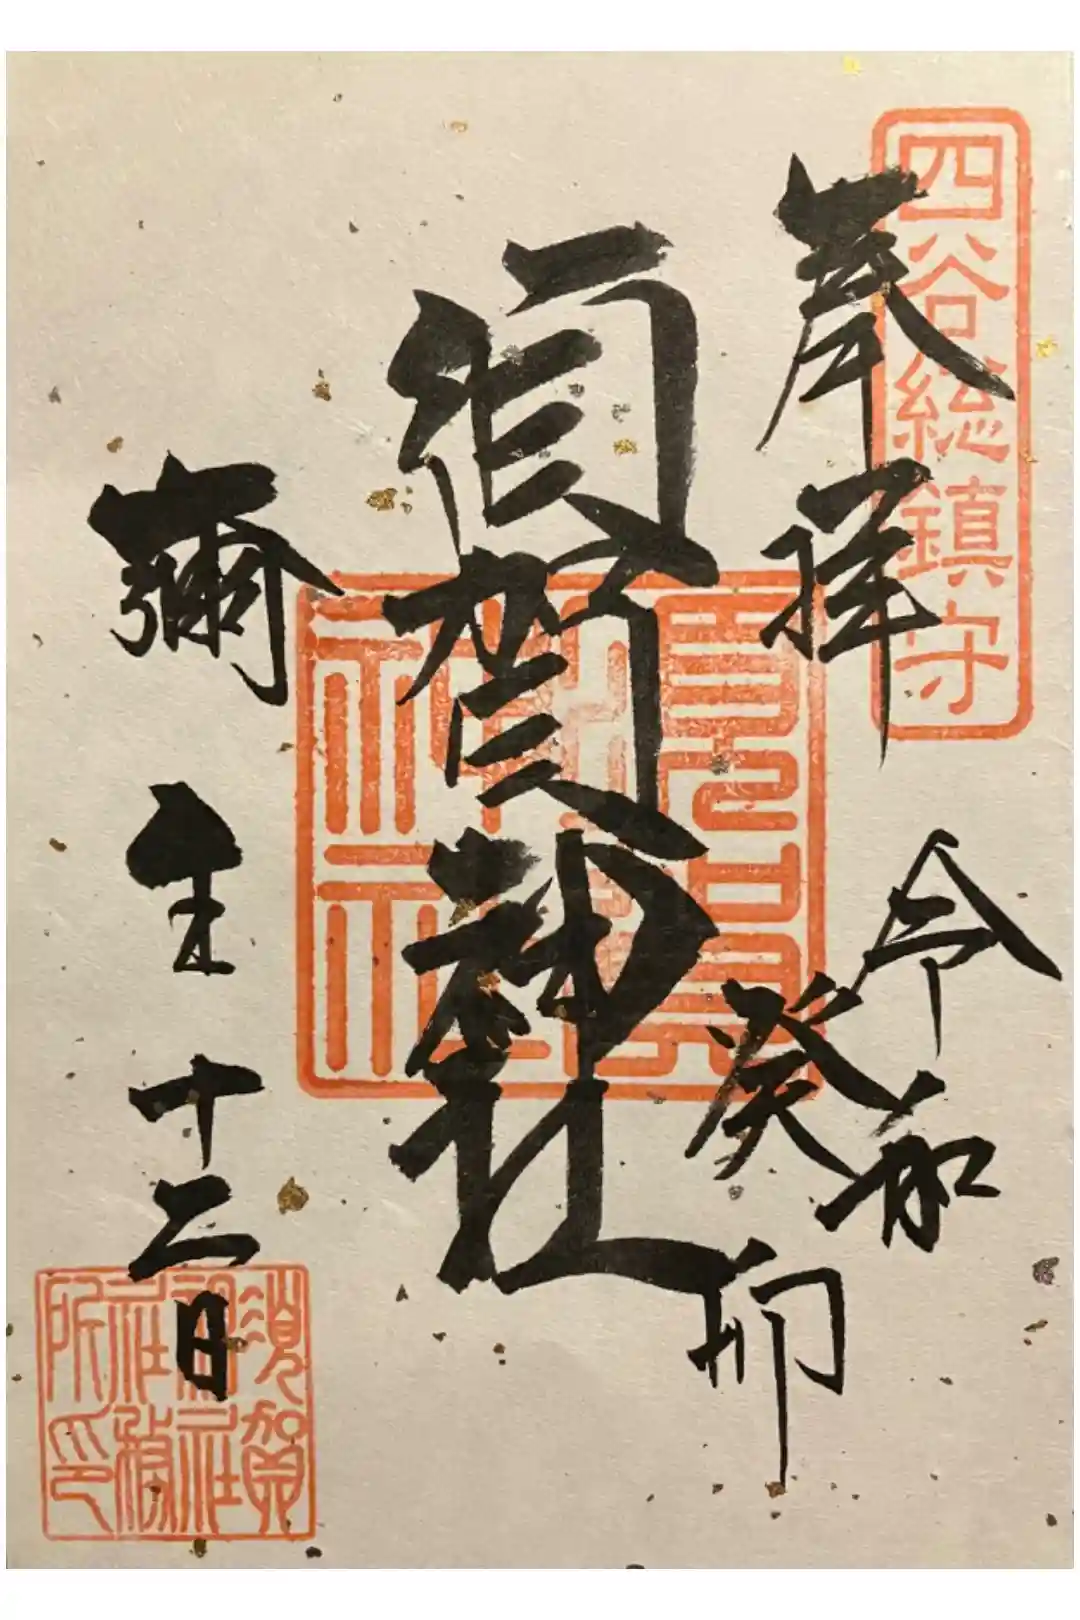 四谷総鎮守
奉拝
令和
癸卯
須賀神社
須賀神社
彌生十二日
須賀神社社務所印